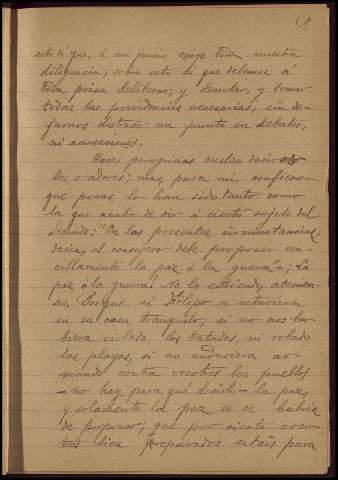 esto sí que, á mi juicio exige toda nuestra
diligencia; sobre esto sí que debemos á
toda prisa deliberar, y decretar, y tomar
todas las providencias necesarias, sin de-
jarnos distraer un punto en debates,
ni acusaciones.
Cosas peregrinas suelen decir
los oradores; mas, para mí, confieso
que pocas lo han sido tanto como
la que acabo de oir á cierto sujeto del
Senado: "En las presentes circunstancias,
decía, el consejero debe proponer sen-
cillamente la paz ó la guerra" -; La
paz ó la guerra! No lo entiendo, atenien-
ses. Porque, si Filipo se estuviera
en su casa tranquilo; si no nos hu-
biera violado los tratados, ni robado
las plazas, si no anduviera ar-
mando contra vosotros los pueblos
- no hay para qué decirlo - la paz,
y solamente la paz se os habría
de proponer; que por cierto voso-
tros bien preparados estáis para